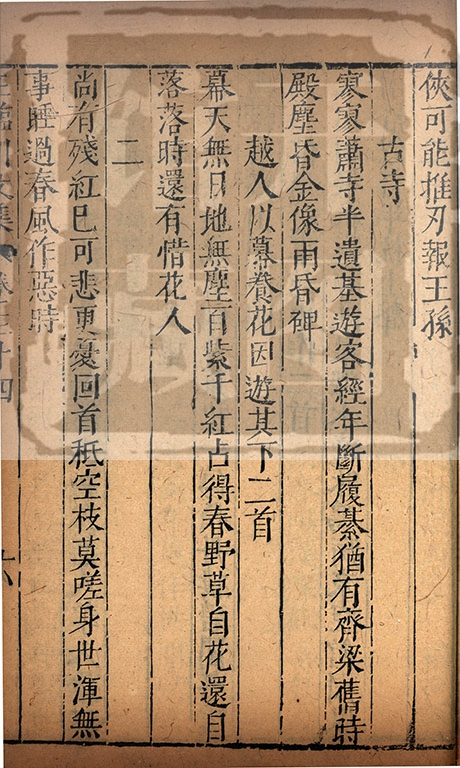 俠可能推刃報王孫
古寺
寥寥蕭寺半遺基遊客經年斷履綦猶有齊梁舊時
殿塵昏金像雨昏碑
越人以幕養花因遊其下二首
幕天無日地無塵百紫千紅占得春野草自花還自
落落時還有惜花人
二
尚有殘紅已可悲更憂回首秪空枝莫嗟身世渾無
事睡過春風作惡時
王臨川文集 卷三十四 十八